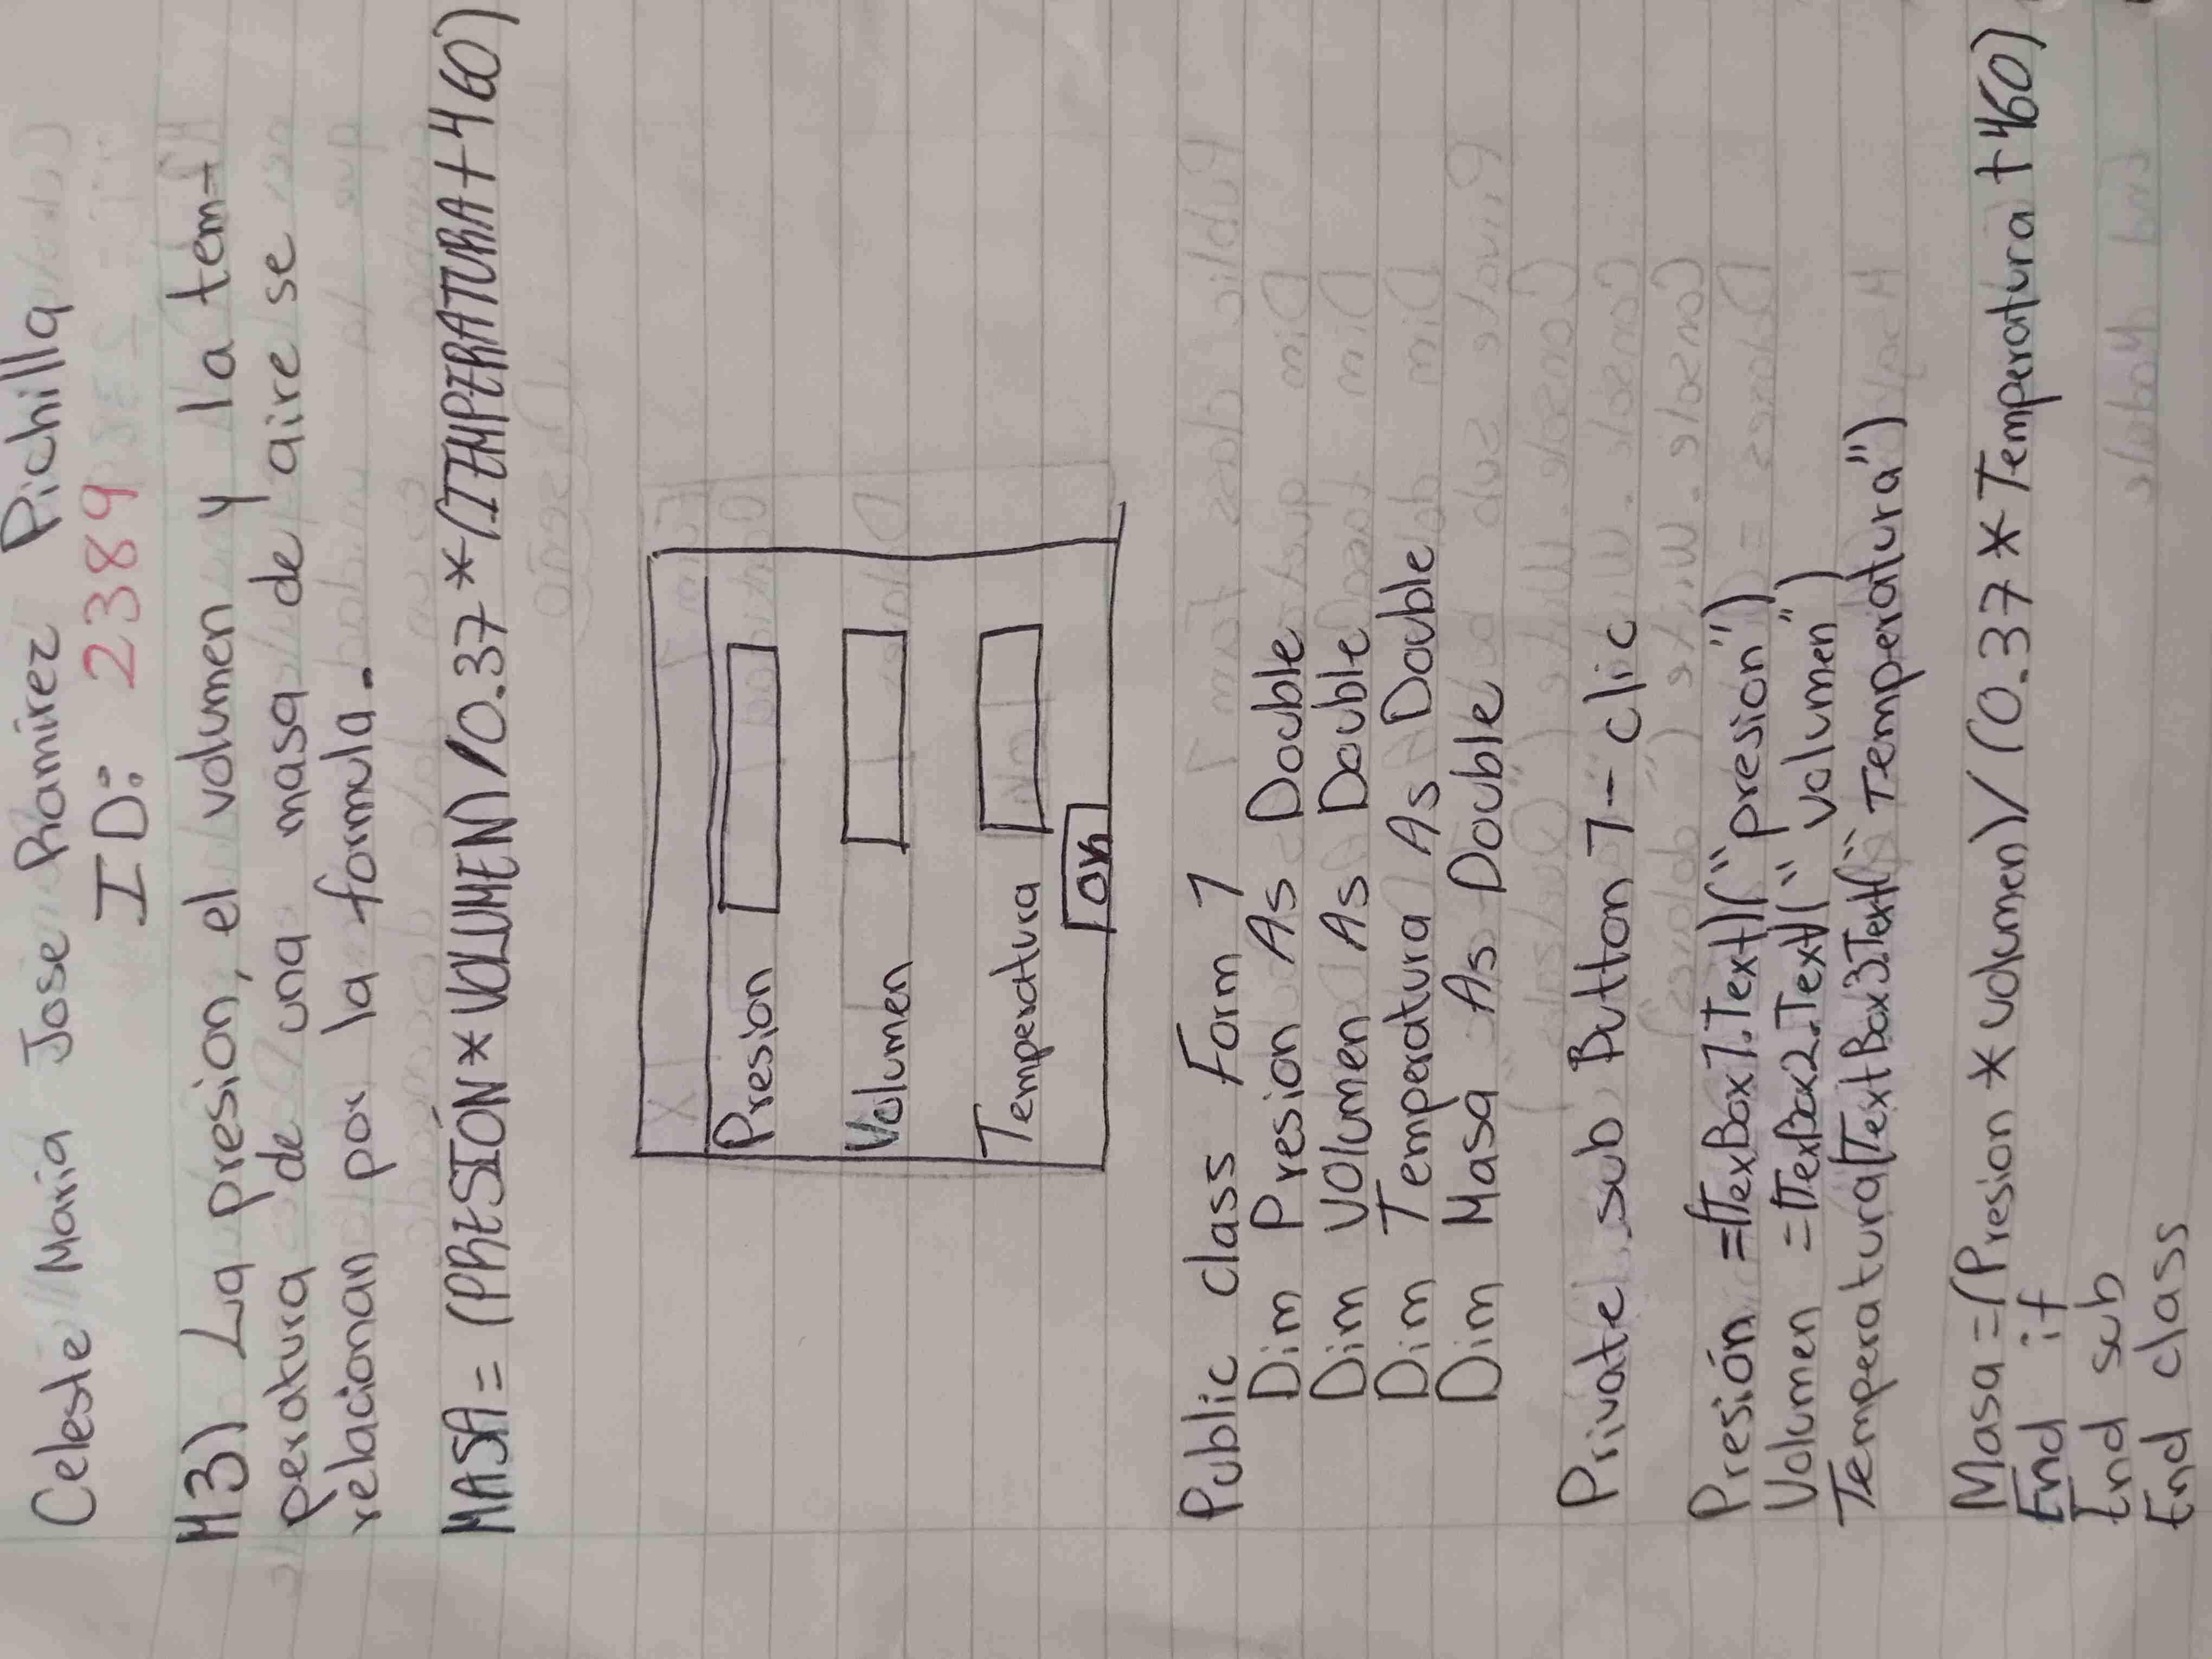 Celeste Maria Jose Ramirez Pichilla
ID: 2389
M3) La presion, el volumen y la tem-
peratura de una masa de aire se
relacionan por la formula.
MASA = (PRESIÓN * VOLUMEN) / 0.37 * (TEMPERATURA + 460)
Presion
Volumen
Temperatura
OK
Public class Form 1
Dim Presion As Double
Dim Volumen As Double
Dim Temperatura As Double
Dim Masa As Double
Private sub Button 1 - clic
Presión = (TexBox1.Text) ("presion")
Volumen = (TexBox2.Text) ("volumen")
Temperatura (TextBox3.Text (" Temperatura")
Masa = (Presion * volumen) / (0.37 * Temperatura + 460)
End if
End sub
End class